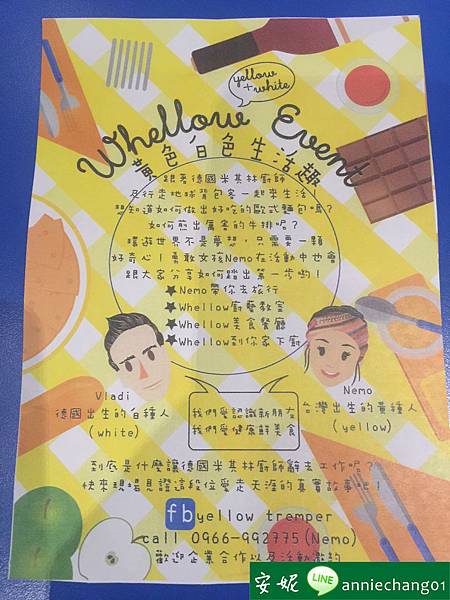 yellow
+
white
Whellow Event
黃色白色生活趣
跟著德國米其林廚師
及行走地球背包客一起來生活
想知道如何做出好吃的歐式麵包嗎?
如何煎出厲害的牛排呢?
環遊世界不是夢想,只需要一顆
好奇心!勇敢女孩Nemo在活動中也會
跟大家分享如何踏出第一步喲!
★Nemo帶你去旅行
★Whellow廚藝教室
★Whellow美食餐廳
★Whellow到你家下廚
Vladi
德國出生的白種人
(white)
我們愛認識新朋友
我們愛健康鮮美食
Nemo
台灣出生的黃種人
(yellow)
到底是什麼讓德國米其林廚師辭去工作呢?
快來現場見證這段位愛走天涯的真實故事吧!
fb yellow tremper
call 0966-992775(Nemo)
歡迎企業合作以及活動邀約
安妮 LINE anniechang01